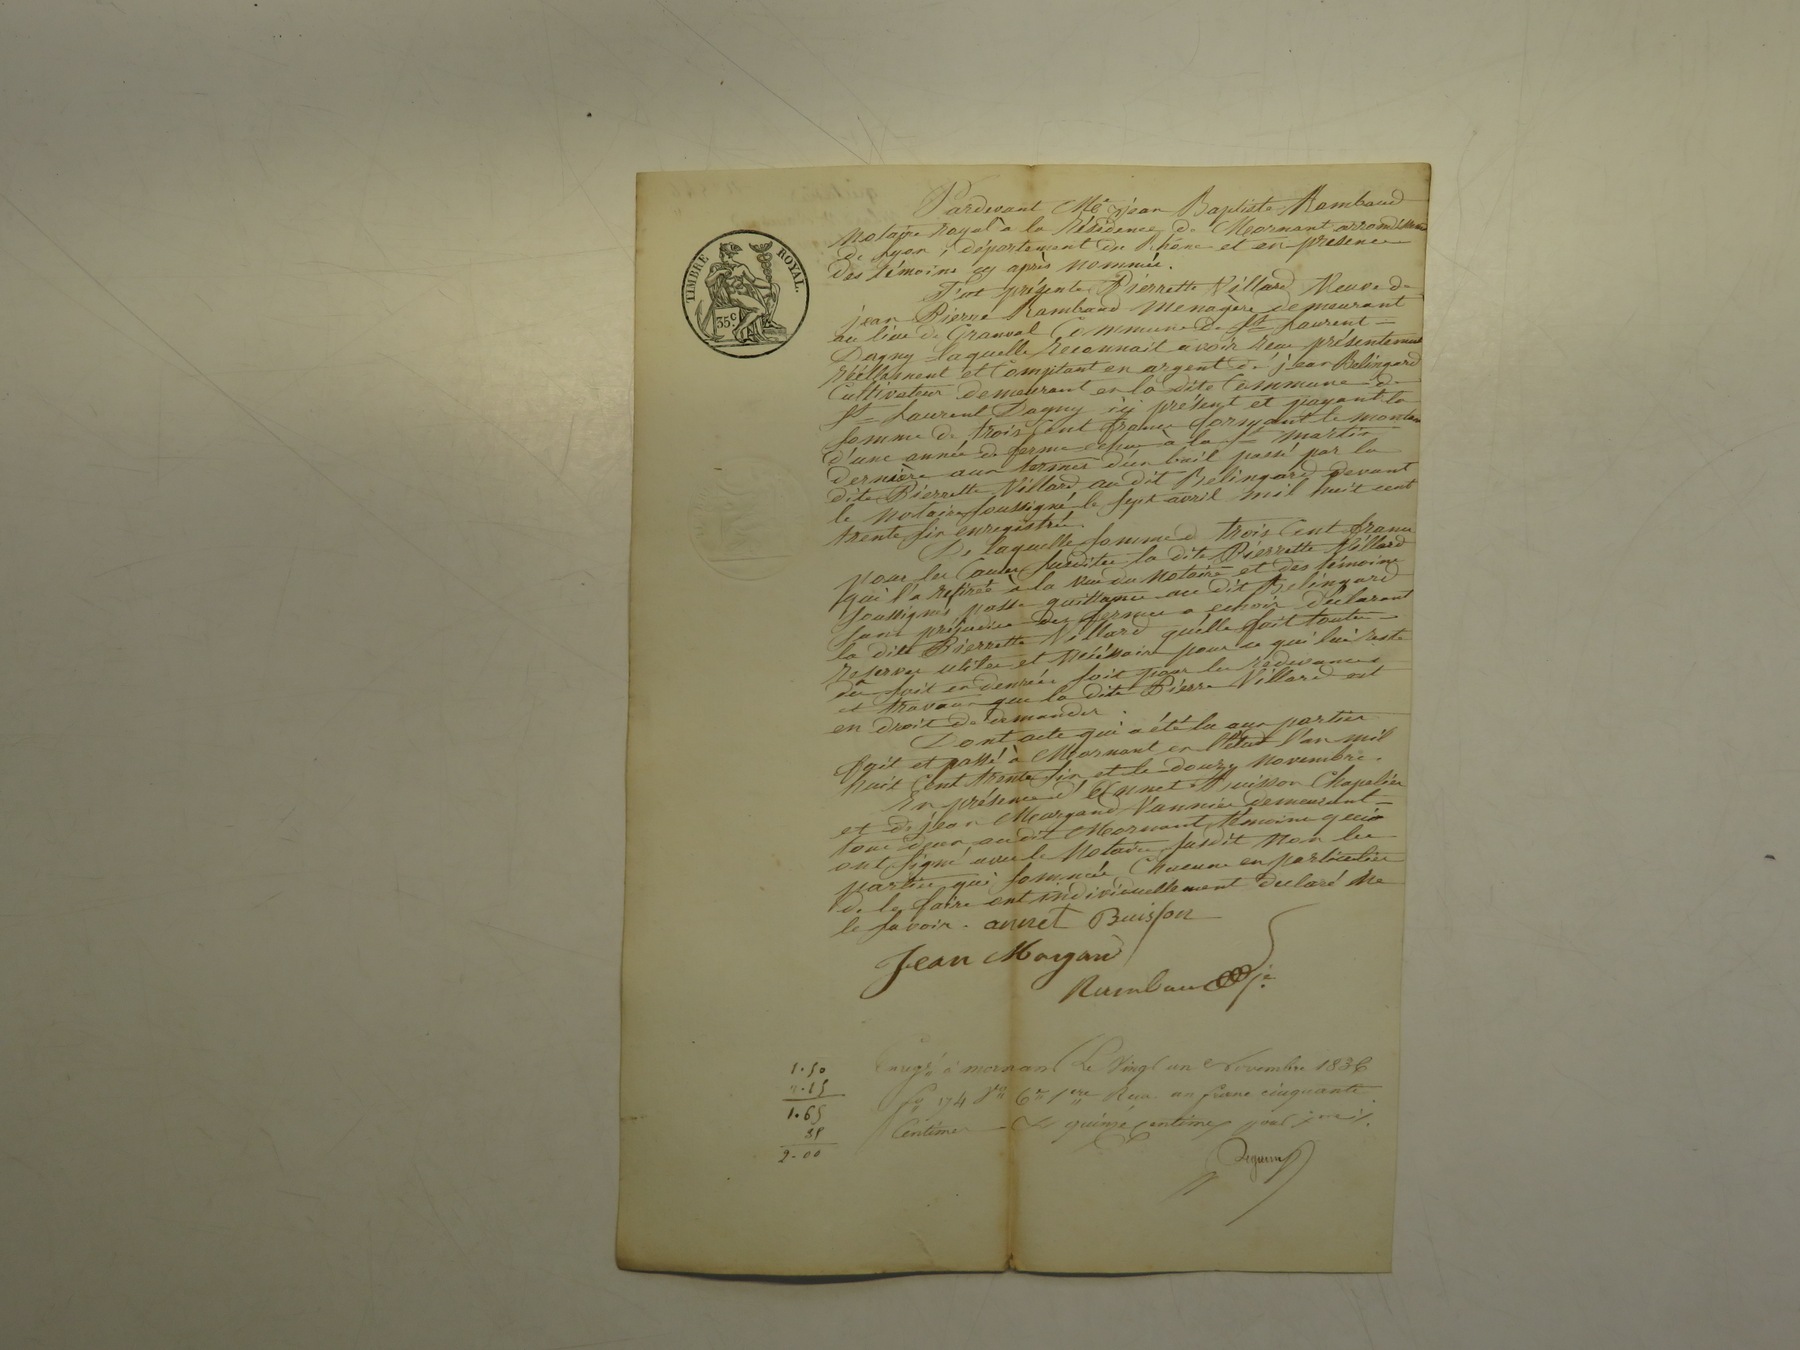 TIMBRE ROYAL.
35 c.
Pardevant Me jean Baptiste Rambaud
Notaire royal à la Résidence de Mornant arrondissem
de Lyon, département du Rhône et en présence
des témoins cy après nommés.
fut présente Pierrette Villard Veuve de
jean Pierre Rambaud Menagère demeurant
au lieu de Granval Commune de St Laurent
Dagny laquelle reconnait avoir reçu présentement
réellement et Comptant en argent de jean Belingard
Cultivateur demeurant en la dite Commune de
St Laurent Dagny içi présent et payant la
somme de trois Cent francs formant le montan
d'une année de ferme échue à la St martin
dernière aux termes d'un bail passé par la
dite Pierrette Villard au dit Belingard devant
le Notaire soussigné le sept avril mil huit cent
trente six enregistré.
De laquelle somme de trois Cent francs
pour les Causes susdites la dite Pierrette Villard
qui l'a retirée à la vue du Notaire et des témoins
soussignés passe quittance au dit Belingard
sans préjudice des fermes a echoir déclarant
la dite Pierrette Villard qu'elle fait toute
reserves utiles et nécéssaires pour ce qui lui reste
dû soit en denrées soit pour les redevances
et travaux que la dite Pierre Villard est
en droit de demander.
Dont acte qui a été lu aux parties
fait et passé à Mornant en l'étude l'an mil
huit Cent trente six et le douze Novembre.
En présence d'Annet Buisson Chapelier
et de jean Margand Vannier demeurant
tous deux au dit Mornant témoins qui
ont signé avec le Notaire susdit Non les
parties qui sommées Chacune en particulier
de le faire ont individuellement declaré Ne
le savoir. annet Buisson
Jean Margand
Rambaud
1.50
.15
1.65
35
2.00
Enregé à mornant Le Vingt un Novembre 1836
fo 174 Vo 6 Reçu un franc cinquante
Centimes quinze centimes pour